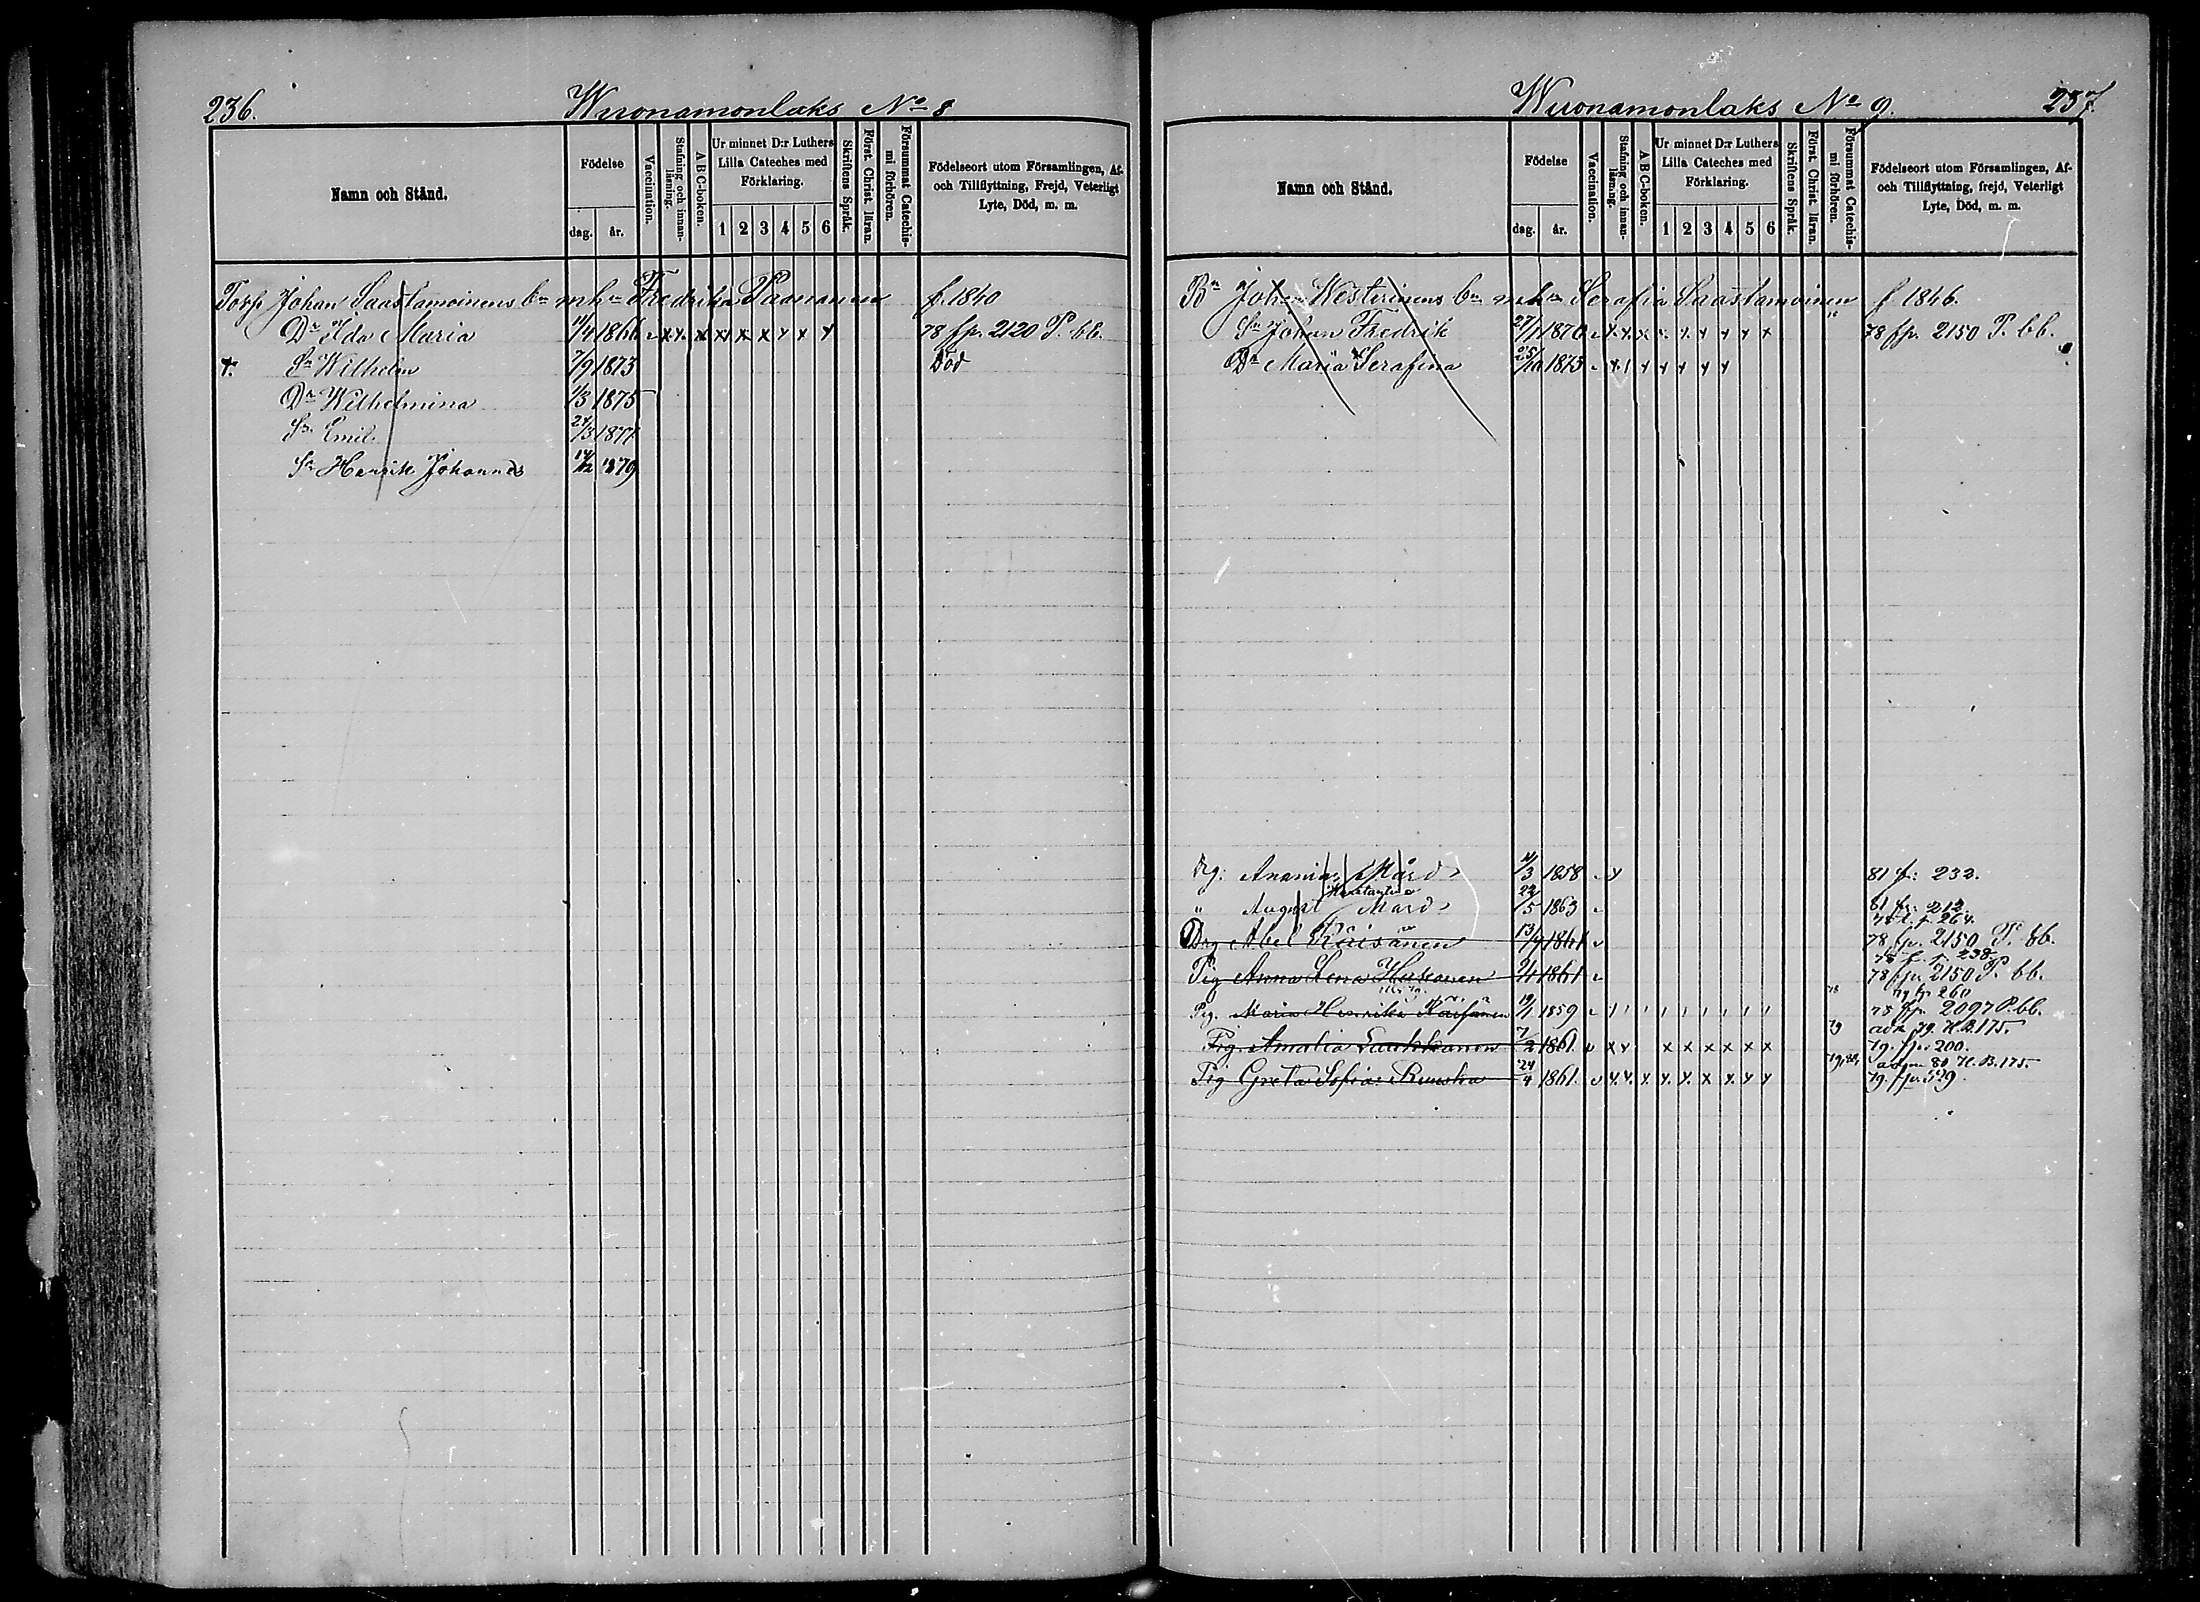 236. Wuonamonlaks No 8
Namn och Stånd.
Födelse
dag. år.
Vaccination.
Stafning och innan-läsning.
A B C-boken.
Ur minnet D:r Luthers
Lilla Cateches med
Förklaring.
1 2 3 4 5 6
Skriftens Språk.
Först. Christ. läran.
Försummat Catechis-mi förhören.
Födelseort utom Församlingen, Af-
och Tillflyttning, Frejd, Veterligt
Lyte, Död, m. m.
Torp Johan Saastamoinens bn mhu Fredrika Paananen f. 1840
Dr Ida Maria 11/4 1866 v x x. x x x x y x y 78 fp. 2120 P. bb.
†. Sn Wilhelm 7/9 1873 Död
Dr Wilhelmina 1/3 1875
Sn Emil 24/3 1877
Sn Henrik Johannes 14/12 1879
Wuonamonlaks No 9. 237.
Namn och Stånd.
Födelse
dag. år.
Vaccination.
Stafning och innan-läsning.
A B C-boken.
Ur minnet D:r Luthers
Lilla Cateches med
Förklaring.
1 2 3 4 5 6
Skriftens Språk.
Först. Christ. läran.
Försummat Catechis-mi förhören.
Födelseort utom Församlingen, Af-
och Tillflyttning, frejd, Veterligt
Lyte, Död, m. m.
Bn Johan Westerinens bn mhu Serafia Saastamoinen f 1846.
Sn Johan Fredrik 27/1 1870 78 fp. 2150 P. bb.
Dr Maria Serafina 25/10 1873
Drg: Ananias Mård 11/3 1858 81 fr: 232.
Konstantin
" August Mard 22/5 1863 81 fr: 212
78 t. p. 264.
Drg Abel Räisänen 13/9 1861 78 fp. 2150 P. bb.
78 f. p. 238
Pig Anna Lena 1861 78 fp. 2150 P. bb.
79 fp 260
Pig. Maria Henrika Räisänen 19/1 1859 78 fp. 2097 P. bb.
79 adm 79. K.B. 175.
Pig. Amalia Laukkanen 7/2 1861. 79. fp. 200.
79,80, adm 80 K.B. 175.
Pig Greta Sofia 24/4 1861. 79. fp. 529.